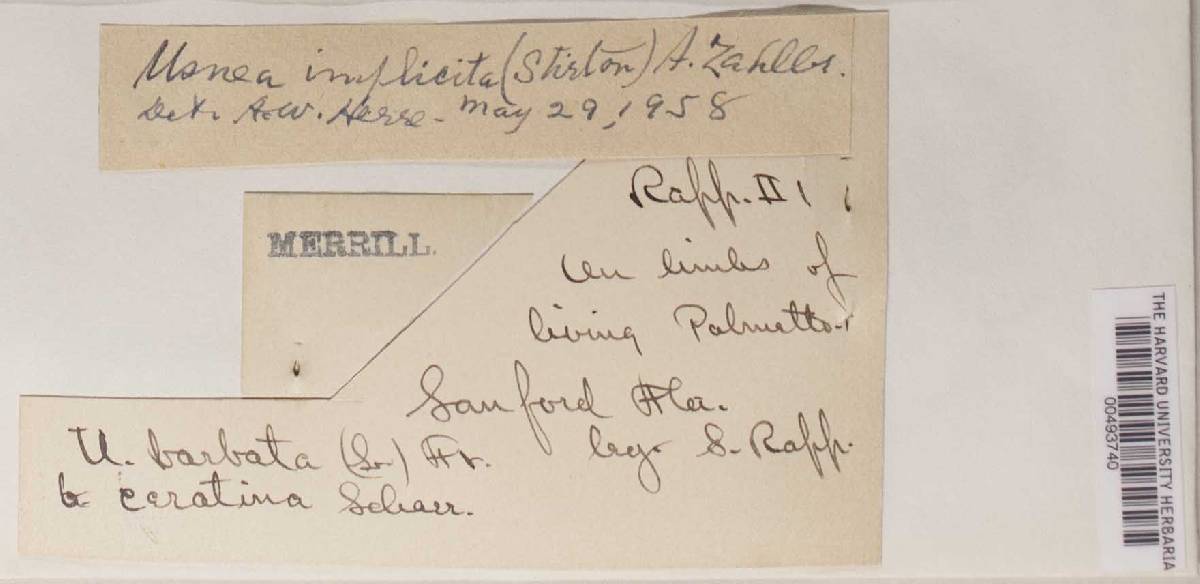 Usnea implicita (Stirton) A. Zahlbr.
Det. A.W. Herre - May 29, 1958
Rapp. II 1
MERRILL.
On limbs of
living Palmetto
Sanford Fla.
leg. S. Rapp.
U. barbata (L.) Fr.
b ceratina Schaer.
THE HARVARD UNIVERSITY HERBARIA
00493740